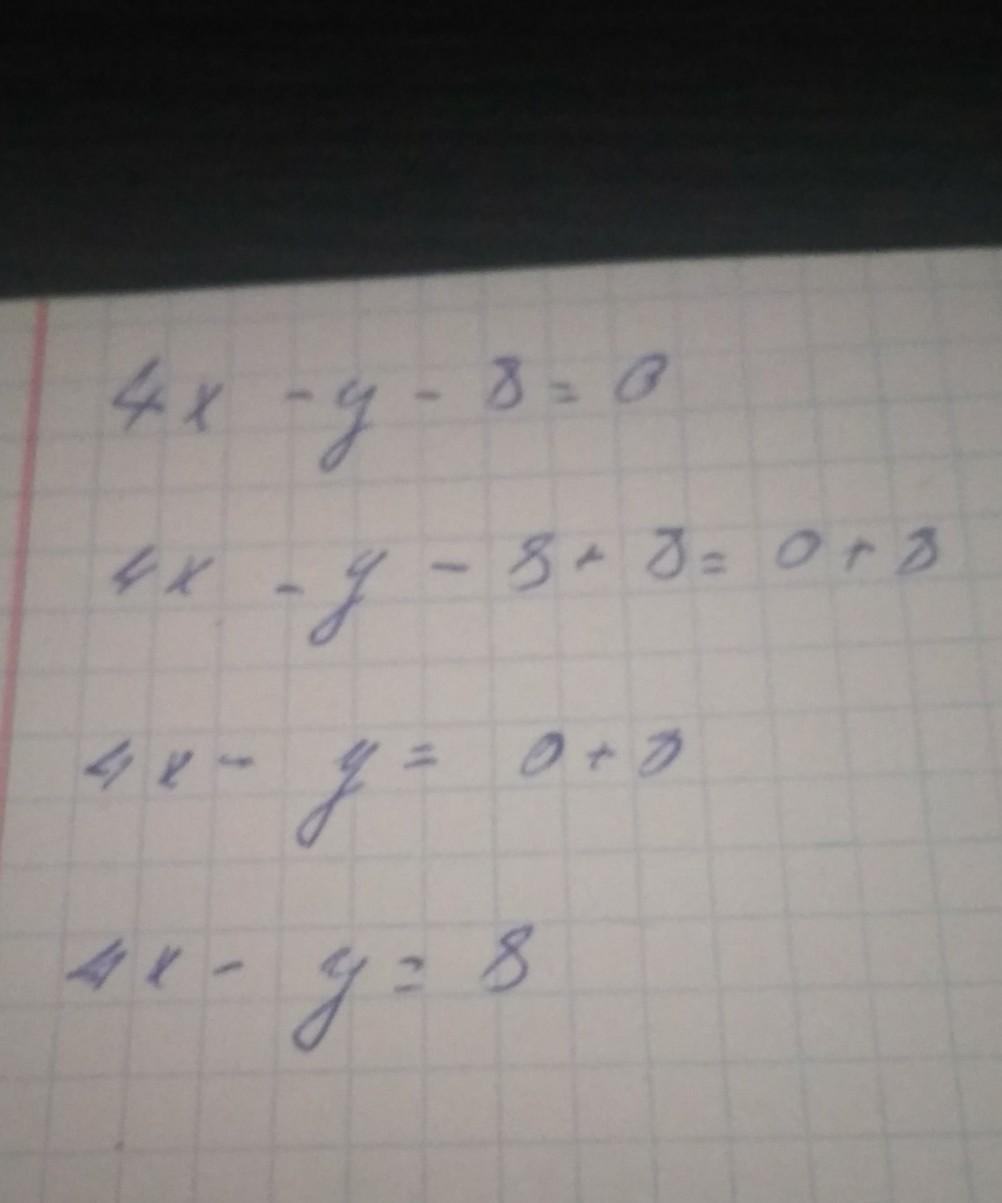 4x - y - 8 = 0
4x - y - 8 + 8 = 0 + 8
4x - y = 0 + 8
4x - y = 8